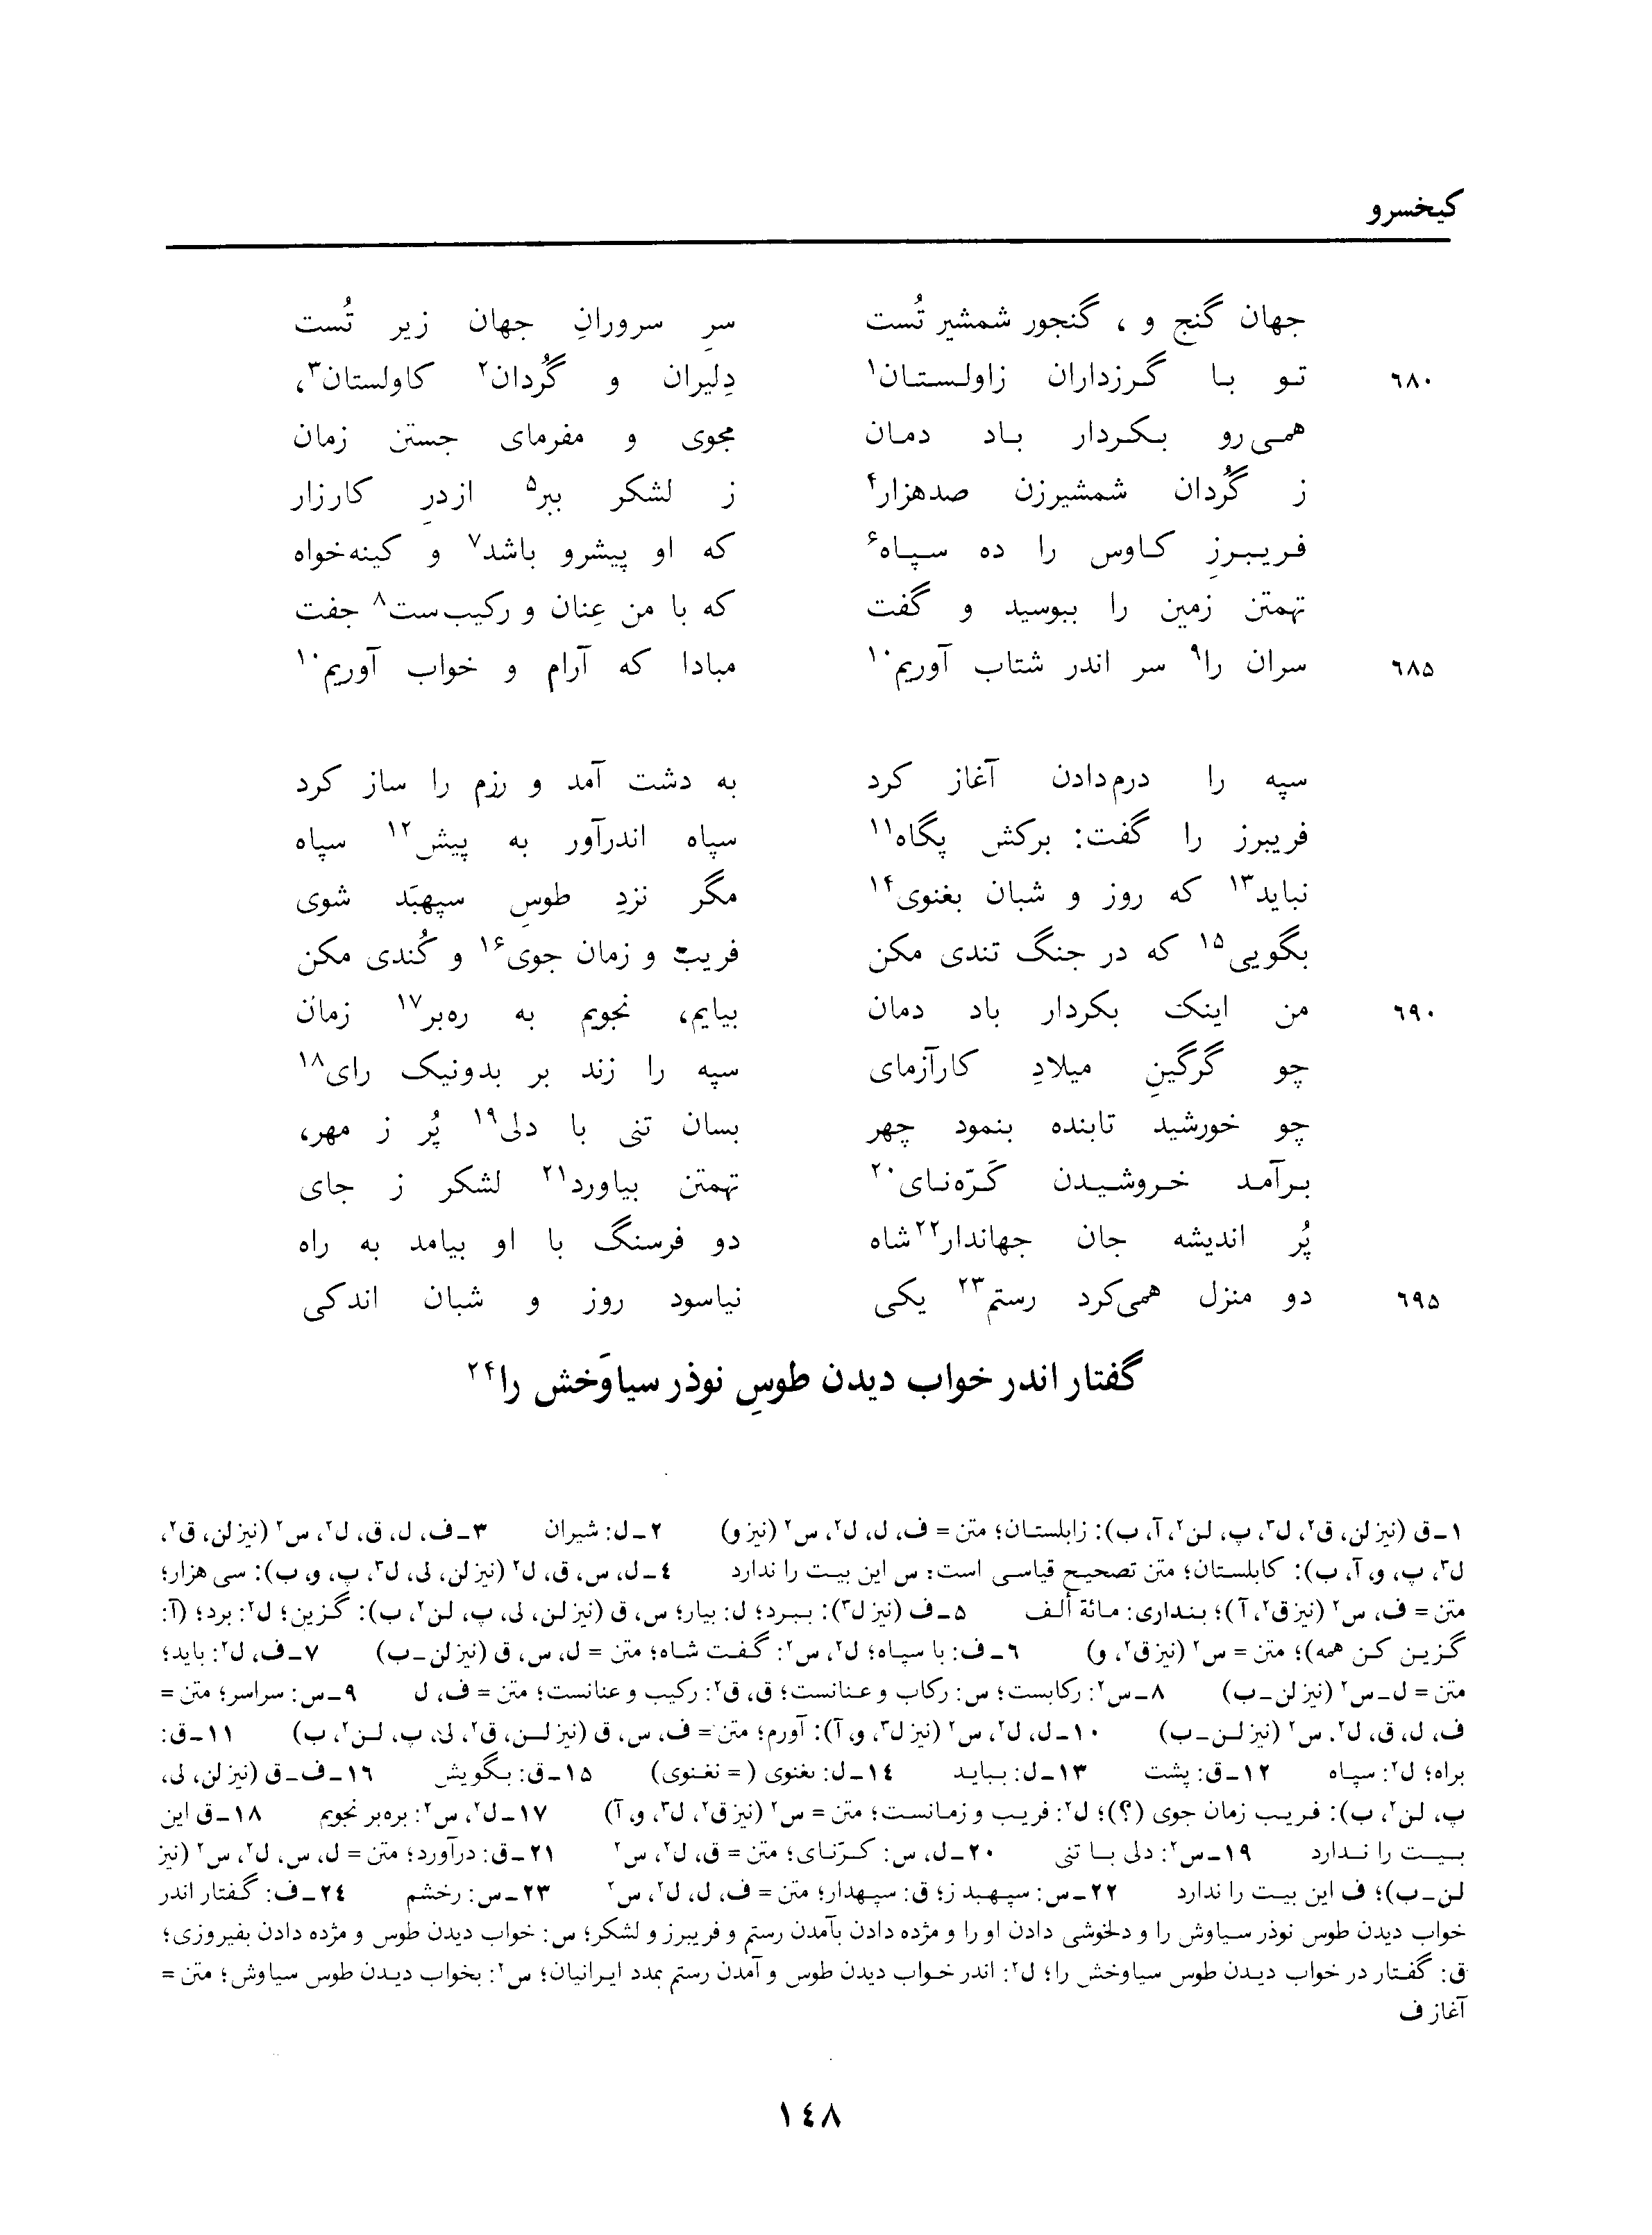 کیخسرو
جهان گنج و ، گنجور شمشیر تُست سرِ سرورانِ جهان زیر تُست
٦٨٠ تو با گرزداران زاولستان۱ دِلیران و گُردان۲ کاولستان۳،
همی‌رو بکردار باد دمان مجوی و مفرمای جستن زمان
ز گُردان شمشیرزن صدهزار۴ ز لشکر ببر۵ ازدرِ کارزار
فریبرزِ کاوس را ده سپاه۶ که او پیشرو باشد۷ و کینه‌خواه
تهمتن زمین را ببوسید و گفت که با من عِنان و رکیب‌ست۸ جفت
٦٨۵ سران را۹ سر اندر شتاب آوریم۱۰ مبادا که آرام و خواب آوریم۱۰
سپه را درم‌دادن آغاز کرد به دشت آمد و رزم را ساز کرد
فریبرز را گفت: برکش پگاه۱۱ سپاه اندرآور به پیش۱۲ سپاه
نباید۱۳ که روز و شبان بغنوی۱۴ مگر نزدِ طوسِ سپهبَد شوی
بگویی۱۵ که در جنگ تندی مکن فریب و زمان جوی۱۶ و کُندی مکن
٦٩٠ من اینک بکردار باد دمان بیایم، نجویم به ره‌بر۱۷ زمان
چو گرگینِ میلادِ کارآزمای سپه را زند بر بدونیک رای۱۸
چو خورشید تابنده بنمود چهر بسان تنی با دلی۱۹ پُر ز مهر،
برآمد خروشیدن کَرّه‌نای۲۰ تهمتن بیاورد۲۱ لشکر ز جای
پُر اندیشه جان جهاندار۲۲ شاه دو فرسنگ با او بیامد به راه
٦٩۵ دو منزل همی‌کرد رستم۲۳ یکی نیاسود روز و شبان اندکی
گفتار اندر خواب دیدن طوسِ نوذر سیاوَخش را۲۴
۱ـ ق (نیز لن، ق۲، ل۳، پ، لن۲، آ، ب): زابلستان؛ متن = ف، ل، ل۲، س۲ (نیز و) ۲ـ ل: شیران ۳ـ ف، ل، ق، ل۲، س۲ (نیز لن، ق۲،
ل۳، پ، و، آ، ب): کابلستان؛ متن تصحیح قیاسی است؛ س این بیت را ندارد ٤ـ ل، س، ق، ل۲ (نیز لن، لی، ل۳، پ، و، ب): سی هزار؛
متن = ف، س۲ (نیز ق۲، آ)؛ بنداری: مائة ألف ۵ـ ف (نیز ل۳): ببرد؛ ل: بیار؛ س، ق (نیز لن، لی، پ، لن۲، ب): گزین؛ ل۲: برد؛ (آ:
گزین کن همه)؛ متن = س۲ (نیز ق۲، و) ٦ـ ف: با سپاه؛ ل۲، س۲: گفت شاه؛ متن = ل، س، ق (نیز لن ـ ب) ۷ـ ف، ل۲: باید؛
متن = ل ـ س۲ (نیز لن ـ ب) ۸ـ س۲: رکابست؛ س: رکاب و عنانست؛ ق، ق۲: رکیب و عنانست؛ متن = ف، ل ۹ـ س: سراسر؛ متن =
ف، ل، ق، ل۲، س۲ (نیز لن ـ ب) ۱۰ـ ل، ل۲، س۲ (نیز ل۳، و، آ): آورم؛ متن = ف، س، ق (نیز لن، ق۲، لی، پ، لن۲، ب) ۱۱ـ ق:
براه؛ ل۲: سپاه ۱۲ـ ق: پشت ۱۳ـ ل: بباید ۱٤ـ ل: بغنوی (= نغنوی) ۱۵ـ ق: بگویش ۱٦ـ ف ـ ق (نیز لن، لی،
پ، لن۲، ب): فریب زمان جوی (؟)؛ ل۲: فریب و زمانست؛ متن = س۲ (نیز ق۲، ل۳، و، آ) ۱۷ـ ل۲، س۲: بره‌بر نجویم ۱۸ـ ق این
بیت را ندارد ۱۹ـ س۲: دلی با تنی ۲۰ـ ل، س: کرّنای؛ متن = ق، ل۲، س۲ ۲۱ـ ق: درآورد؛ متن = ل، س، ل۲، س۲ (نیز
لن ـ ب)؛ ف این بیت را ندارد ۲۲ـ س: سپهبد ز؛ ق: سپهدار؛ متن = ف، ل، ل۲، س۲ ۲۳ـ س: رخشم ۲٤ـ ف: گفتار اندر
خواب دیدن طوس نوذر سیاوش را و دلخوشی دادن او را و مژده دادن بآمدن رستم و فریبرز و لشکر؛ س: خواب دیدن طوس و مژده دادن بفیروزی؛
ق: گفتار در خواب دیدن طوس سیاوخش را؛ ل۲: اندر خواب دیدن طوس و آمدن رستم بمدد ایرانیان؛ س۲: بخواب دیدن طوس سیاوش؛ متن =
آغاز ف
١٤٨